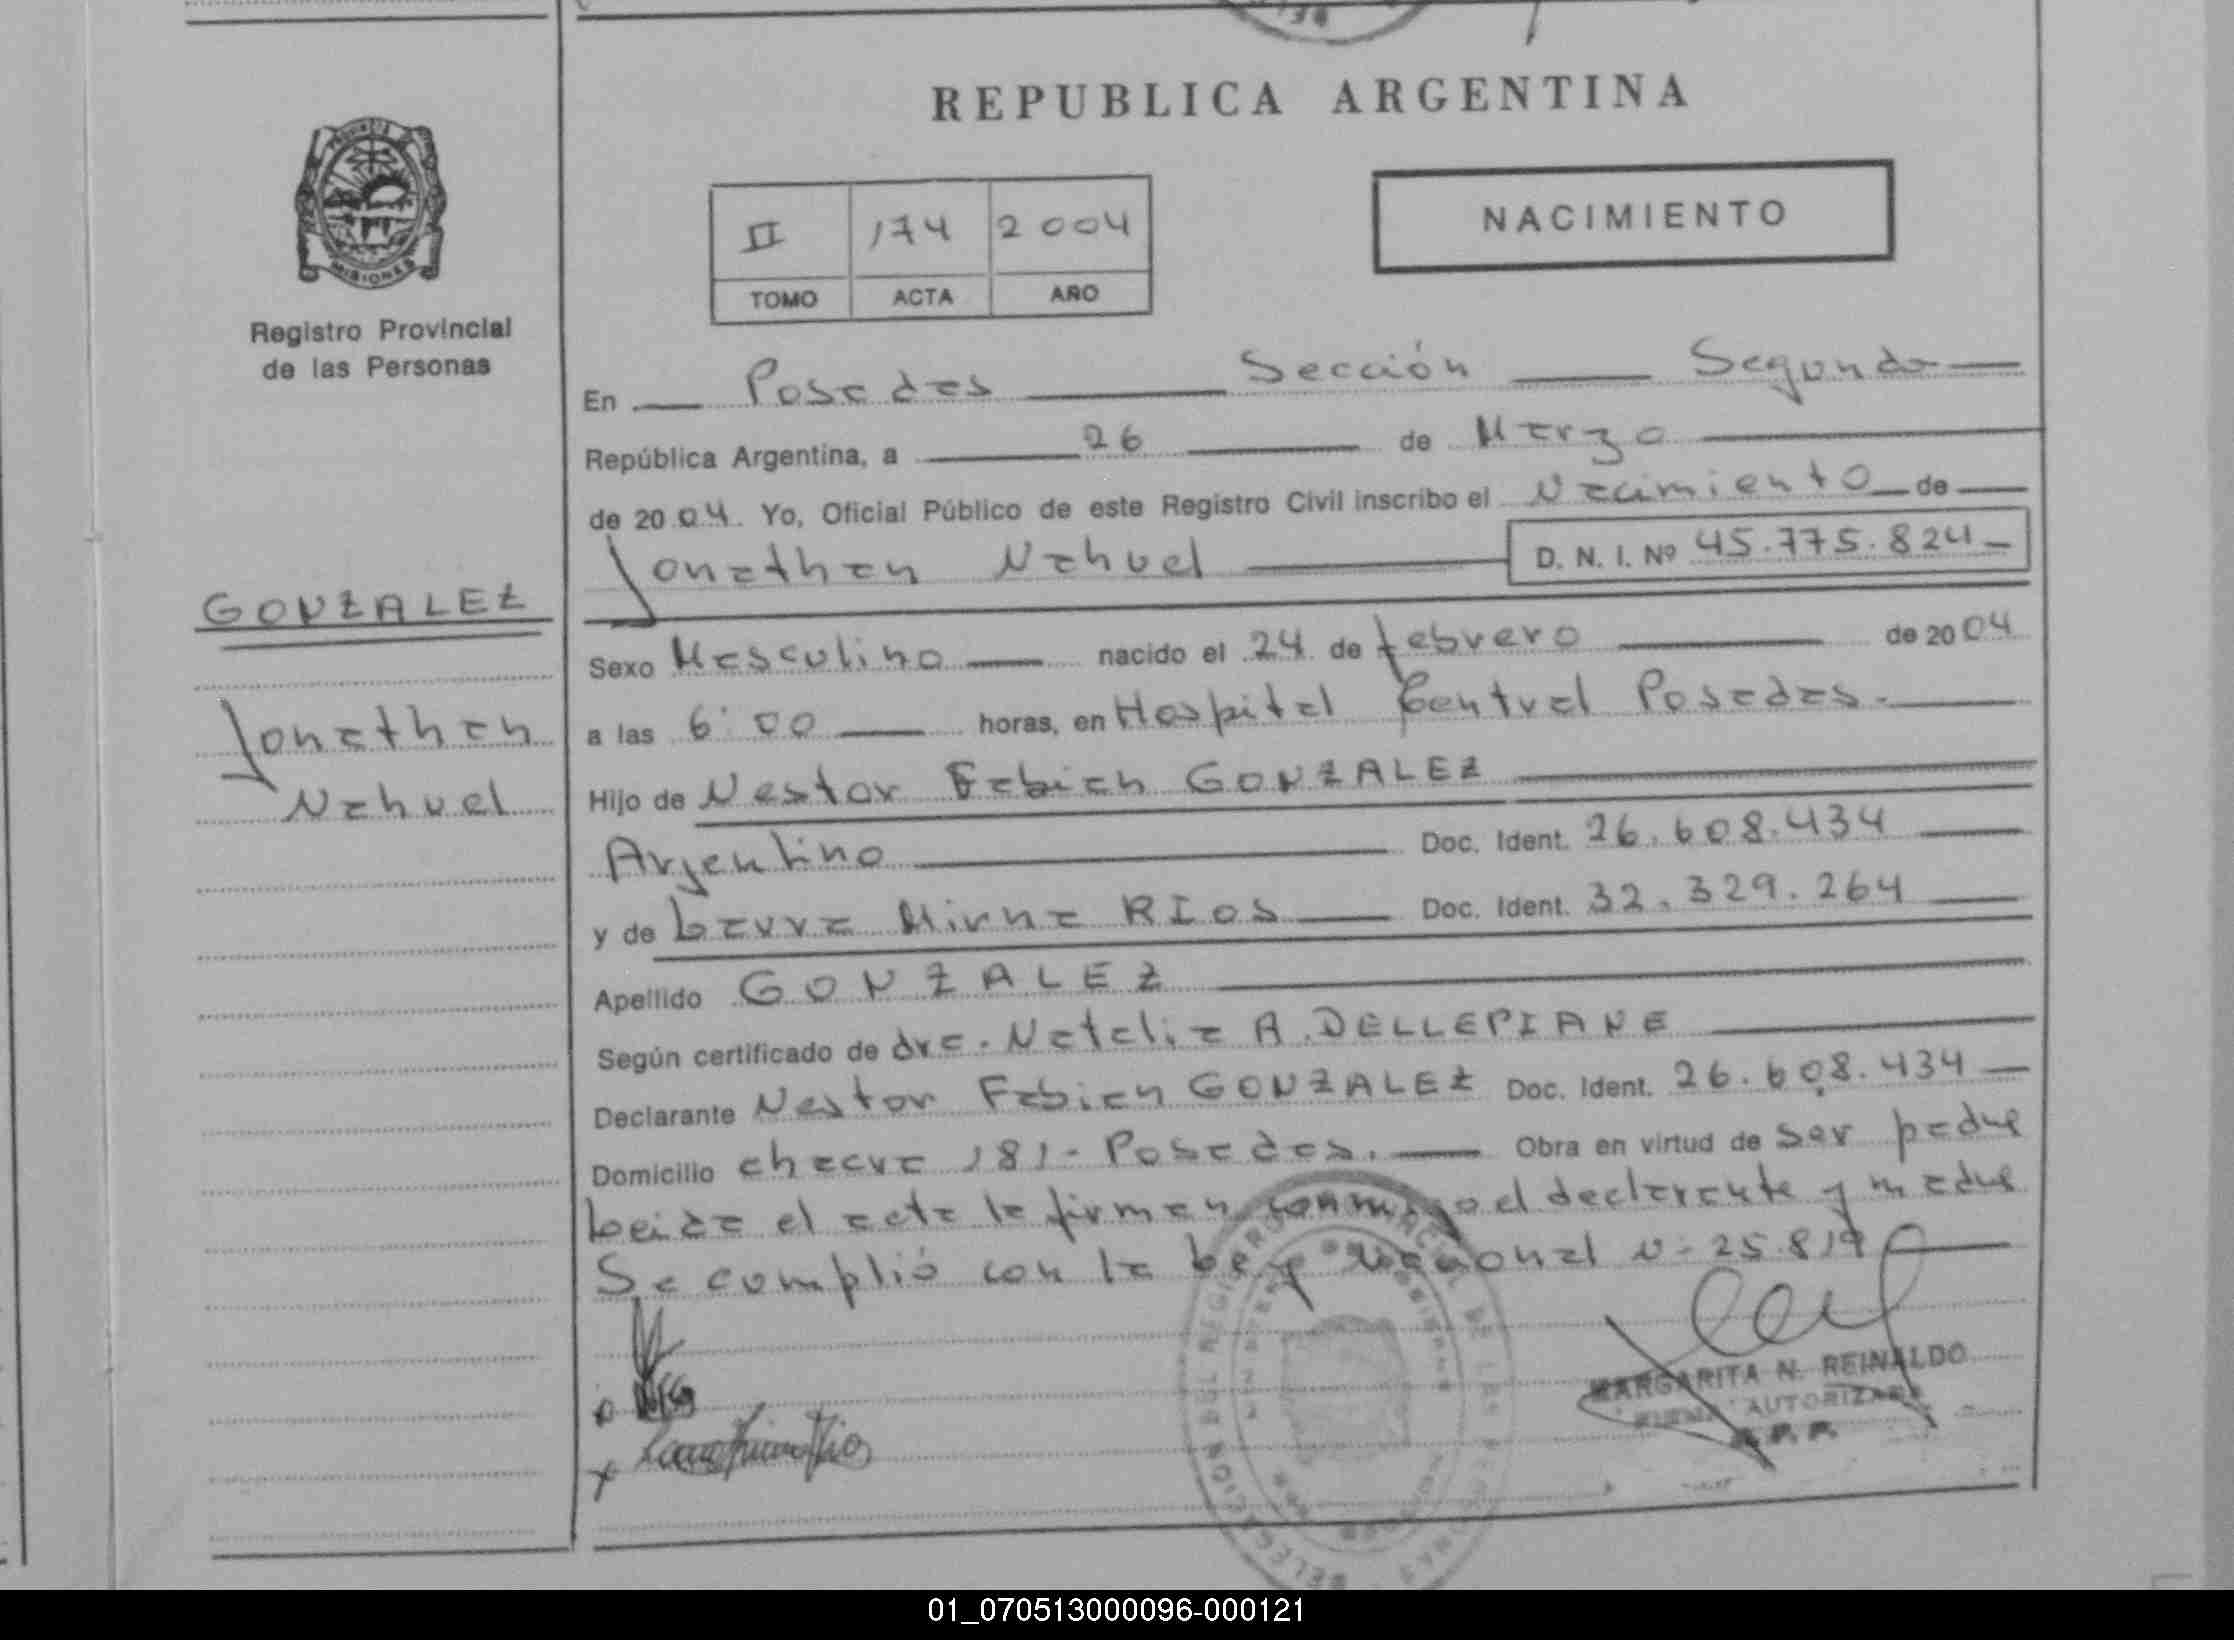 REPUBLICA ARGENTINA
MISIONES
Registro Provincial
de las Personas
II 174 2004
TOMO ACTA AÑO
NACIMIENTO
En Posadas Sección Segunda
República Argentina, a 26 de Marzo
de 2004. Yo, Oficial Público de este Registro Civil inscribo el Nacimiento de
Jonathan Nahuel D. N. I. Nº 45.775.824
GONZALEZ
Jonathan
Nahuel
Sexo Masculino nacido el 24 de febrero de 2004
a las 6:00 horas, en Hospital Central Posadas.
Hijo de Nestor Fabian GONZALEZ
Argentino Doc. Ident. 26.608.434
y de Laura Mirna RIOS Doc. Ident. 32.329.264
Apellido GONZALEZ
Según certificado de dra. Natalia A. DELLEPIANE
Declarante Nestor Fabian GONZALEZ Doc. Ident. 26.608.434
Domicilio chacra 181- Posadas. Obra en virtud de ser padre
Leida el acta la firman conmigo el declarante y madre
Se cumplió con la Ley Nacional N- 25.819
MARGARITA N. REINALDO
FIRMA AUTORIZADA
R. P. P.
01_070513000096-000121